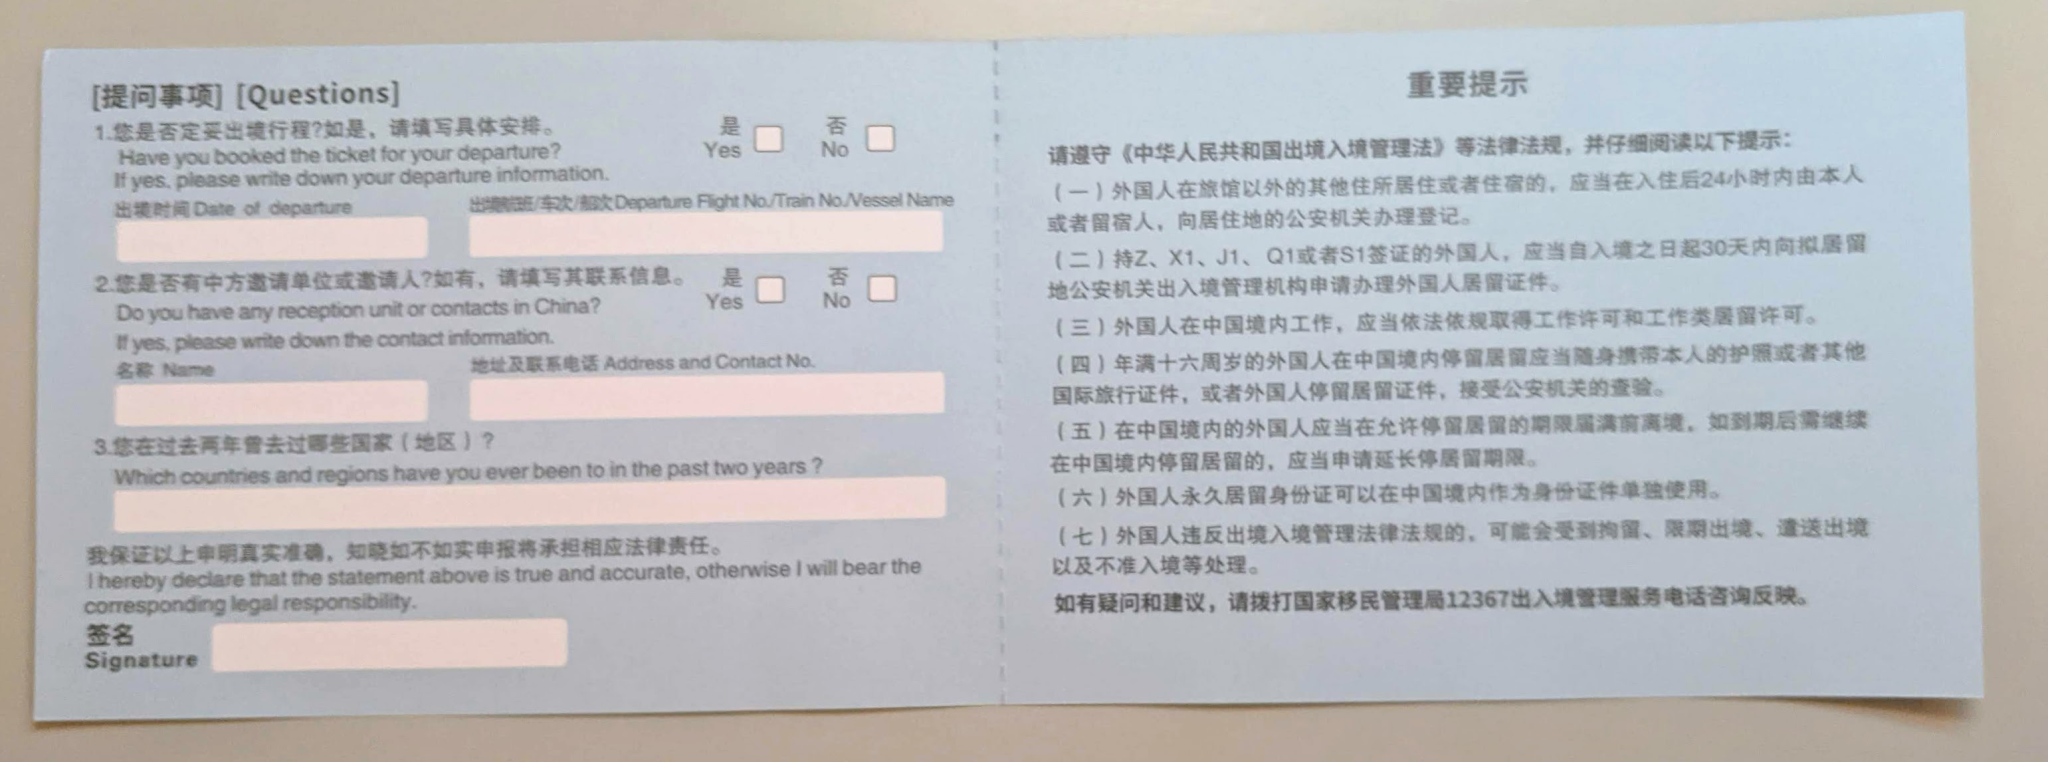 [提问事项] [Questions]
1.您是否定妥出境行程?如是，请填写具体安排。
是 否
Have you booked the ticket for your departure?
Yes No
If yes, please write down your departure information.
出境时间 Date of departure
出境航班/车次/船次 Departure Flight No./Train No./Vessel Name
2.您是否有中方邀请单位或邀请人?如有，请填写其联系信息。
是 否
Do you have any reception unit or contacts in China?
Yes No
If yes, please write down the contact information.
名称 Name
地址及联系电话 Address and Contact No.
3.您在过去两年曾去过哪些国家（地区）?
Which countries and regions have you ever been to in the past two years ?
我保证以上申明真实准确，知晓如不如实申报将承担相应法律责任。
I hereby declare that the statement above is true and accurate, otherwise I will bear the
corresponding legal responsibility.
签名
Signature
重要提示
请遵守《中华人民共和国出境入境管理法》等法律法规，并仔细阅读以下提示：
（一）外国人在旅馆以外的其他住所居住或者住宿的，应当在入住后24小时内由本人
或者留宿人，向居住地的公安机关办理登记。
（二）持Z、X1、J1、Q1或者S1签证的外国人，应当自入境之日起30天内向拟居留
地公安机关出入境管理机构申请办理外国人居留证件。
（三）外国人在中国境内工作，应当依法依规取得工作许可和工作类居留许可。
（四）年满十六周岁的外国人在中国境内停留居留应当随身携带本人的护照或者其他
国际旅行证件，或者外国人停留居留证件，接受公安机关的查验。
（五）在中国境内的外国人应当在允许停留居留的期限届满前离境，如到期后需继续
在中国境内停留居留的，应当申请延长停居留期限。
（六）外国人永久居留身份证可以在中国境内作为身份证件单独使用。
（七）外国人违反出境入境管理法律法规的，可能会受到拘留、限期出境、遣送出境
以及不准入境等处理。
如有疑问和建议，请拨打国家移民管理局12367出入境管理服务电话咨询反映。